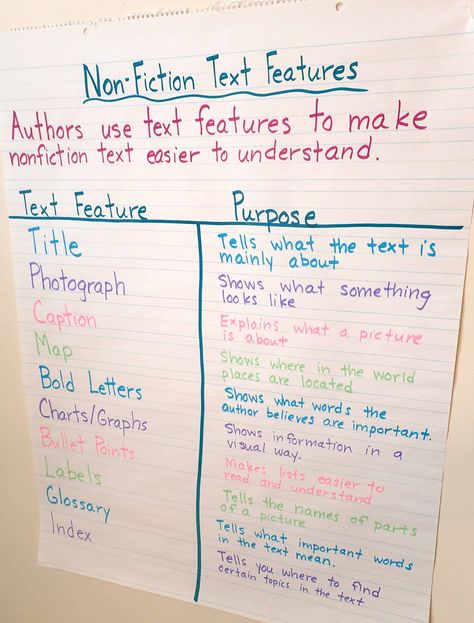 Non-Fiction Text Features
Authors use text features to make
nonfiction text easier to understand.
Text Feature
Purpose
Title
Tells what the text is
mainly about
Photograph
Shows what something
looks like
Caption
Explains what a picture
is about
Map
Shows where in the world
places are located
Bold Letters
Shows what words the
author believes are important.
Charts/Graphs
Shows information in a
visual way.
Bullet Points
Makes lists easier to
read and understand
Labels
Tells the names of parts
of a picture
Glossary
Tells what important words
in the text mean.
Index
Tells you where to find
certain topics in the text